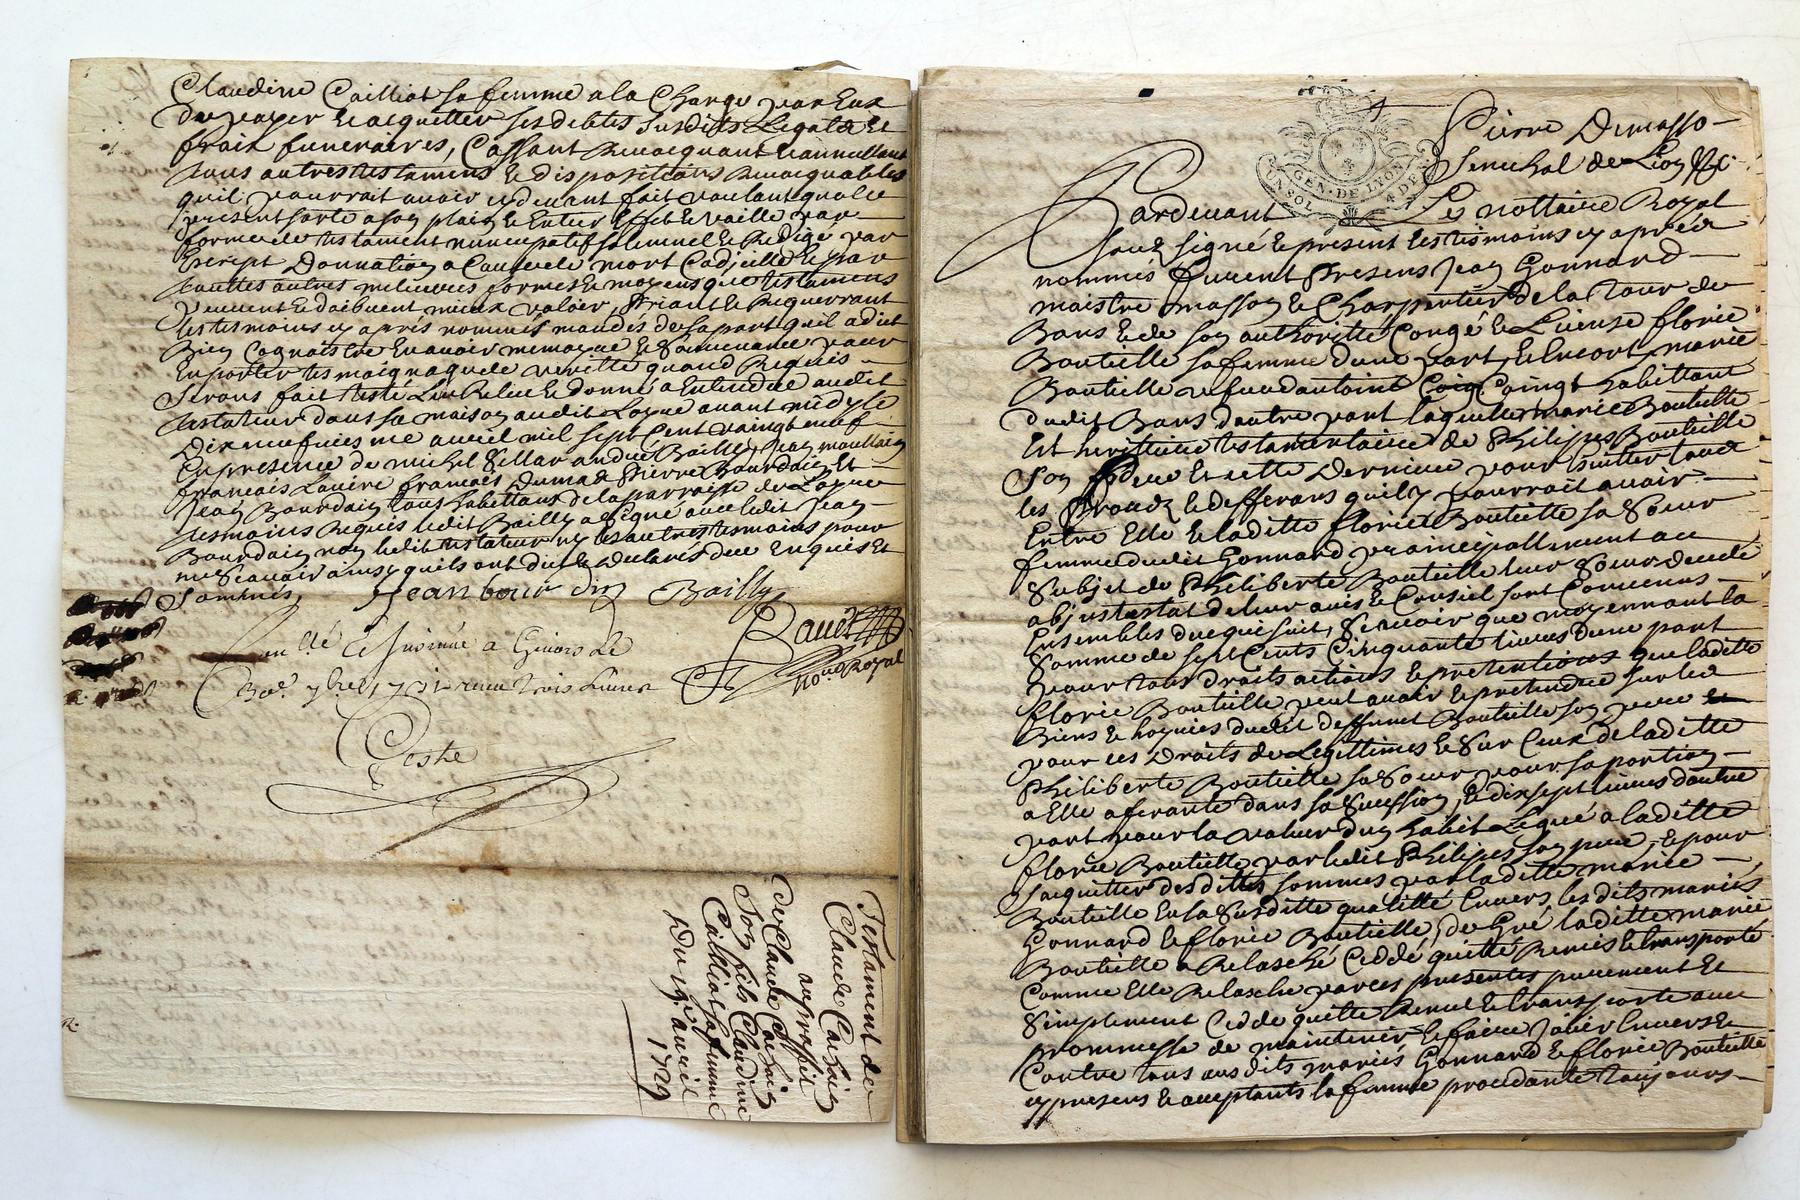 Claudine Cailliot sa femme a la Charge par Eux
de payer & acquitter ses debtes susdits Legats Et
fraix funeraires, Cassant Revocquant & annullant
tous autres testamens & dispositions Revocquables
quil pourrait avoir cy devant fait voulant que le
present sorte a son plain & Entier Effet & vaille par
forme de testament nuncupatif solemnel & Redigé par
Escript Donnation a Cause de mort Codicille & par
touttes autres melieures formes & moyens que testamens
peuvent & doibvent mieux valoir, Priant & Requerrant
les tesmoins cy apres nommés mandés de sa part quil a dict
Bien Cognaistre En avoir memoyre & souvenance pour
En porter tesmoignage de veritte quand Requis
Serons fait testé Leu Releu & donné a Entendre audit
testateur dans sa maison audit Loyre avant midy le
Dix neufviesme avril mil sept Cent vaingt neuf
En presence de michel Villar andré Bailly, Jean
francois Lavire francois Dumas Pierre Bourdain Et
Jean Bourdain tous habittans de la parroisse de Loyre
tesmoins Requis ledit Bailly a signé avec ledit Jean
Bourdain non ledit testateur ny les autres tesmoins pour
ne Scavoir ainsy quils ont dict & declaré de ce Enquis Et
Sommés,
Jean bour din Bailly
Ravet
No.re Royal
Con.llé & Insinué a Givors le
1731 receu trois Livres
Teste
Testament de
Claude
au proffit
de Claude
Son fils & Claudine
Cailliot sa femme
Du 19e avril
1729
Pierre Demasso
Senechal de Lion &c.
GEN. DE LYON
UN SOL 4 DEN
Pardevant Le nottaire Royal
Souz signé & present les tesmoins cy aprés
nommés furent Presens Jean Gonnard
maistre masson & Charpentier de la Tour de
Bans & de son authoritté Congé & License florie
Bouteille sa femme dune part, & Encort marie
Bouteille vefve dantoine Coingt habittant
dudit Bans dautre part laquelle marie Bouteille
Est heritiere testamentaire de Philipes Bouteille
Son pere Et cette Derniere pour Eviter tous
les Procez & differans quil y pourrait avoir
Entre Elle & laditte florie Bouteille sa Soeur
femme dudit Gonnard principallement au
Subjet de Philiberte Bouteille leur Soeur decede
abjntestat de leur avis & Conseil sont Convenus
Ensembles de ce qui suit, Scavoir que moyennant la
Somme de sept Cents Cinquante livres dune part
pour tous droits actions & pretentions que laditte
florie Bouteille peut avoir & pretendre sur les
Biens & hoyries dudit deffunct Bouteille son pere
pour ses Droits de Legittimes & Sur Ceux de laditte
Philiberte Bouteille sa Soeur pour sa portion
a Elle aferante dans sa Sucession, & dix sept livres dautre
part pour la valeur dun habit Legué a laditte
florie Bouteille par ledit Philipes son pere, & pour
Sacquitter desdittes sommes par laditte marie
Bouteille En sa Susditte qualitté Envers les dits mariés
Gonnard & florie Bouteille, de Gré laditte marie
Bouteille a Relasché Ceddé quitté Remis & transporté
Comme Elle Relasche par ces presentes purement Et
Simplement Cedde quitte Remet & transporte avec
prommesse de maintenir & faire Jouir Envers Et
Contre tous aus dits mariés Gonnard & florie Bouteille
cy presens & acceptants la femme procedante toujours